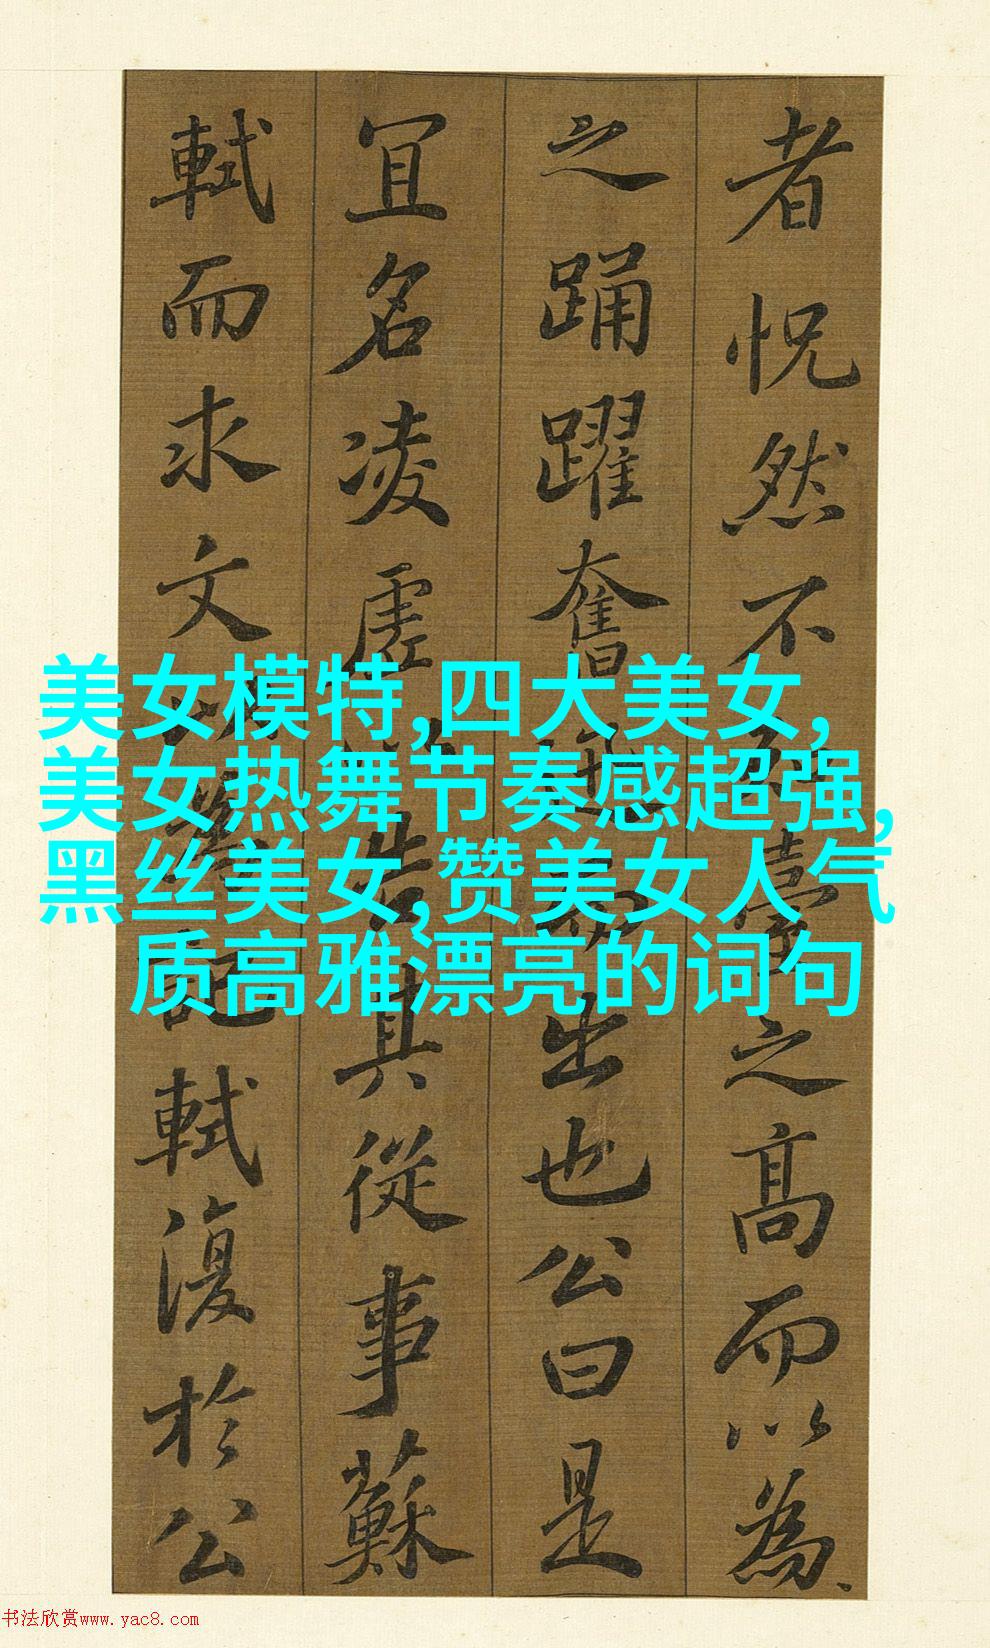 者怳然不知臺之高而以為
之踊躍奮迅而出也公曰是
宜名凌虛以告其從事蘇
軾而求文以為記軾復於公
美女模特,四大美女,
美女热舞节奏感超强,
黑丝美女,赞美女人气
质高雅漂亮的词句
书法欣赏www.yac8.com